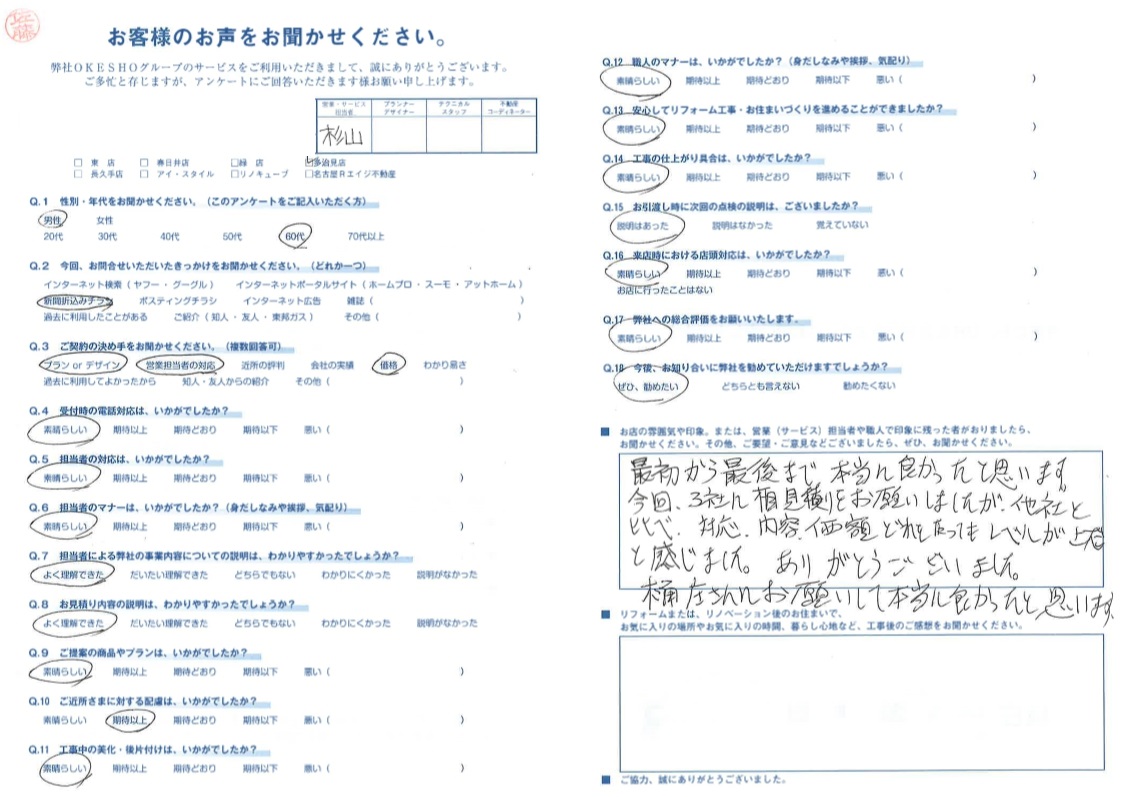 佐藤
お客様のお声をお聞かせください。
弊社OKESHOグループのサービスをご利用いただきまして、誠にありがとうございます。
ご多忙と存じますが、アンケートにご回答いただきます様お願い申し上げます。
営業・サービス担当者 プランナーデザイナー テクニカルスタッフ 不動産コーディネーター
杉山
□ 東 店 □ 春日井店 □緑 店 ☑多治見店
□ 長久手店 □ アイ・スタイル □リノキューブ □名古屋Rエイジ不動産
Q.1 性別・年代をお聞かせください。(このアンケートをご記入いただく方)
男性 女性
20代 30代 40代 50代 60代 70代以上
Q.2 今回、お問合せいただいたきっかけをお聞かせください。(どれか一つ)
インターネット検索(ヤフー・グーグル) インターネットポータルサイト(ホームプロ・スーモ・アットホーム)
新聞折込みチラシ ポスティングチラシ インターネット広告 雑誌( )
過去に利用したことがある ご紹介(知人・友人・東邦ガス) その他( )
Q.3 ご契約の決め手をお聞かせください。(複数回答可)
プラン or デザイン 営業担当者の対応 近所の評判 会社の実績 価格 わかり易さ
過去に利用してよかったから 知人・友人からの紹介 その他( )
Q.4 受付時の電話対応は、いかがでしたか?
素晴らしい 期待以上 期待どおり 期待以下 悪い( )
Q.5 担当者の対応は、いかがでしたか?
素晴らしい 期待以上 期待どおり 期待以下 悪い( )
Q.6 担当者のマナーは、いかがでしたか?(身だしなみや挨拶、気配り)
素晴らしい 期待以上 期待どおり 期待以下 悪い( )
Q.7 担当者による弊社の事業内容についての説明は、わかりやすかったでしょうか?
よく理解できた だいたい理解できた どちらでもない わかりにくかった 説明がなかった
Q.8 お見積り内容の説明は、わかりやすかったでしょうか?
よく理解できた だいたい理解できた どちらでもない わかりにくかった 説明がなかった
Q.9 ご提案の商品やプランは、いかがでしたか?
素晴らしい 期待以上 期待どおり 期待以下 悪い( )
Q.10 ご近所さまに対する配慮は、いかがでしたか?
素晴らしい 期待以上 期待どおり 期待以下 悪い( )
Q.11 工事中の美化・後片付けは、いかがでしたか?
素晴らしい 期待以上 期待どおり 期待以下 悪い( )
Q.12 職人のマナーは、いかがでしたか?(身だしなみや挨拶、気配り)
素晴らしい 期待以上 期待どおり 期待以下 悪い( )
Q.13 安心してリフォーム工事・お住まいづくりを進めることができましたか?
素晴らしい 期待以上 期待どおり 期待以下 悪い( )
Q.14 工事の仕上がり具合は、いかがでしたか?
素晴らしい 期待以上 期待どおり 期待以下 悪い( )
Q.15 お引渡し時に次回の点検の説明は、ございましたか?
説明はあった 説明はなかった 覚えていない
Q.16 来店時における店頭対応は、いかがでしたか?
素晴らしい 期待以上 期待どおり 期待以下 悪い( )
お店に行ったことはない
Q.17 弊社への総合評価をお願いいたします。
素晴らしい 期待以上 期待どおり 期待以下 悪い( )
Q.18 今後、お知り合いに弊社を勧めていただけますでしょうか?
ぜひ、勧めたい どちらとも言えない 勧めたくない
■ お店の雰囲気や印象。または、営業(サービス)担当者や職人で印象に残った者がおりましたら、
お聞かせください。その他、ご要望・ご意見などございましたら、ぜひ、お聞かせください。
最初から最後まで、本当に良かったと思います
今回、3社に相見積りをお願いしましたが、他社と
比べ、対応、内容、価額どれをとってもレベルが上だ
と感じました。ありがとうございました。
桶庄さんにお願いして本当に良かったと思います
■ リフォームまたは、リノベーション後のお住まいで、
お気に入りの場所やお気に入りの時間、暮らし心地など、工事後のご感想をお聞かせください。
■ ご協力、誠にありがとうございました。